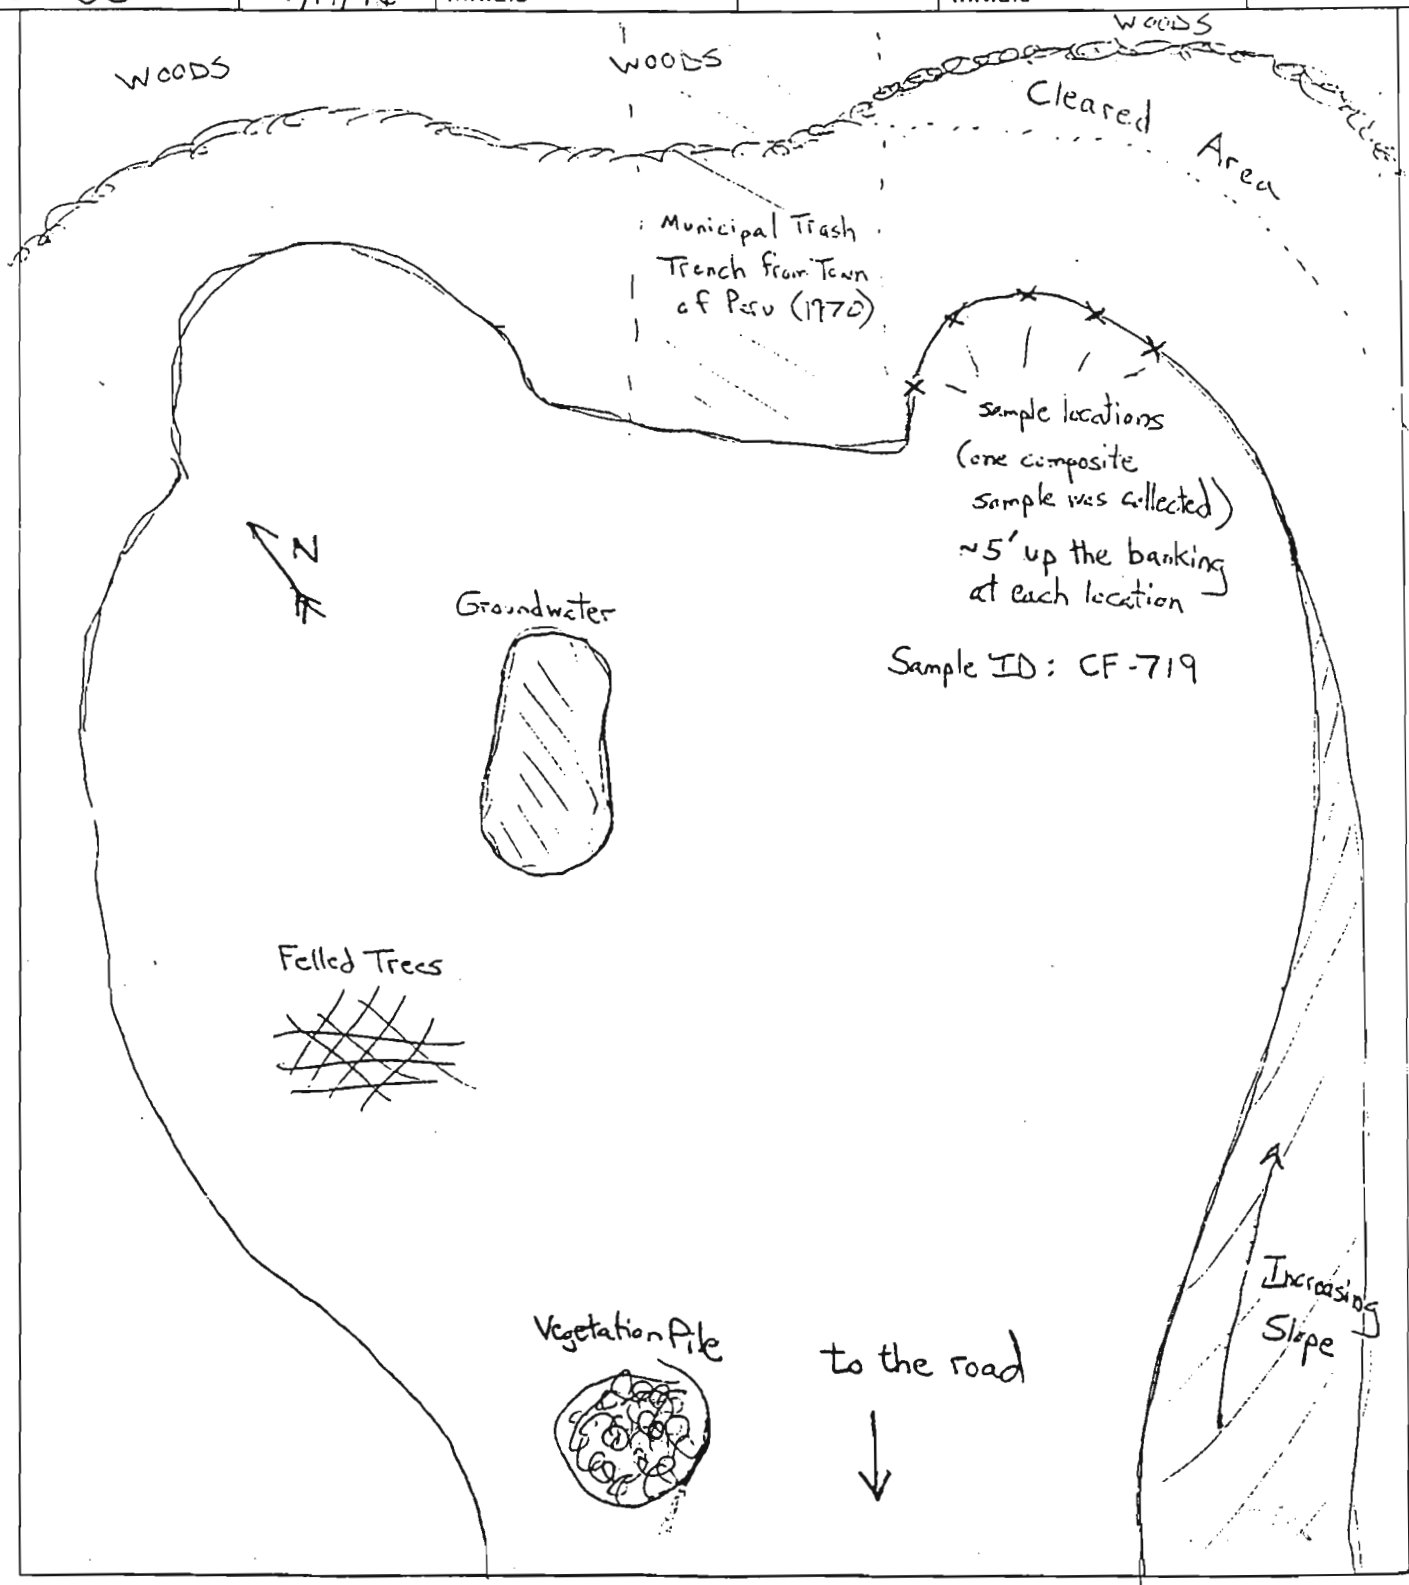 WOODS
WOODS
WOODS
Cleared
Area
Municipal Trash
Trench from Town
of Peru (1970)
sample locations
(one composite
sample was collected)
~5' up the banking
at each location
Sample ID: CF-719
N
Groundwater
Felled Trees
Vegetation Pile
to the road
Increasing
Slope